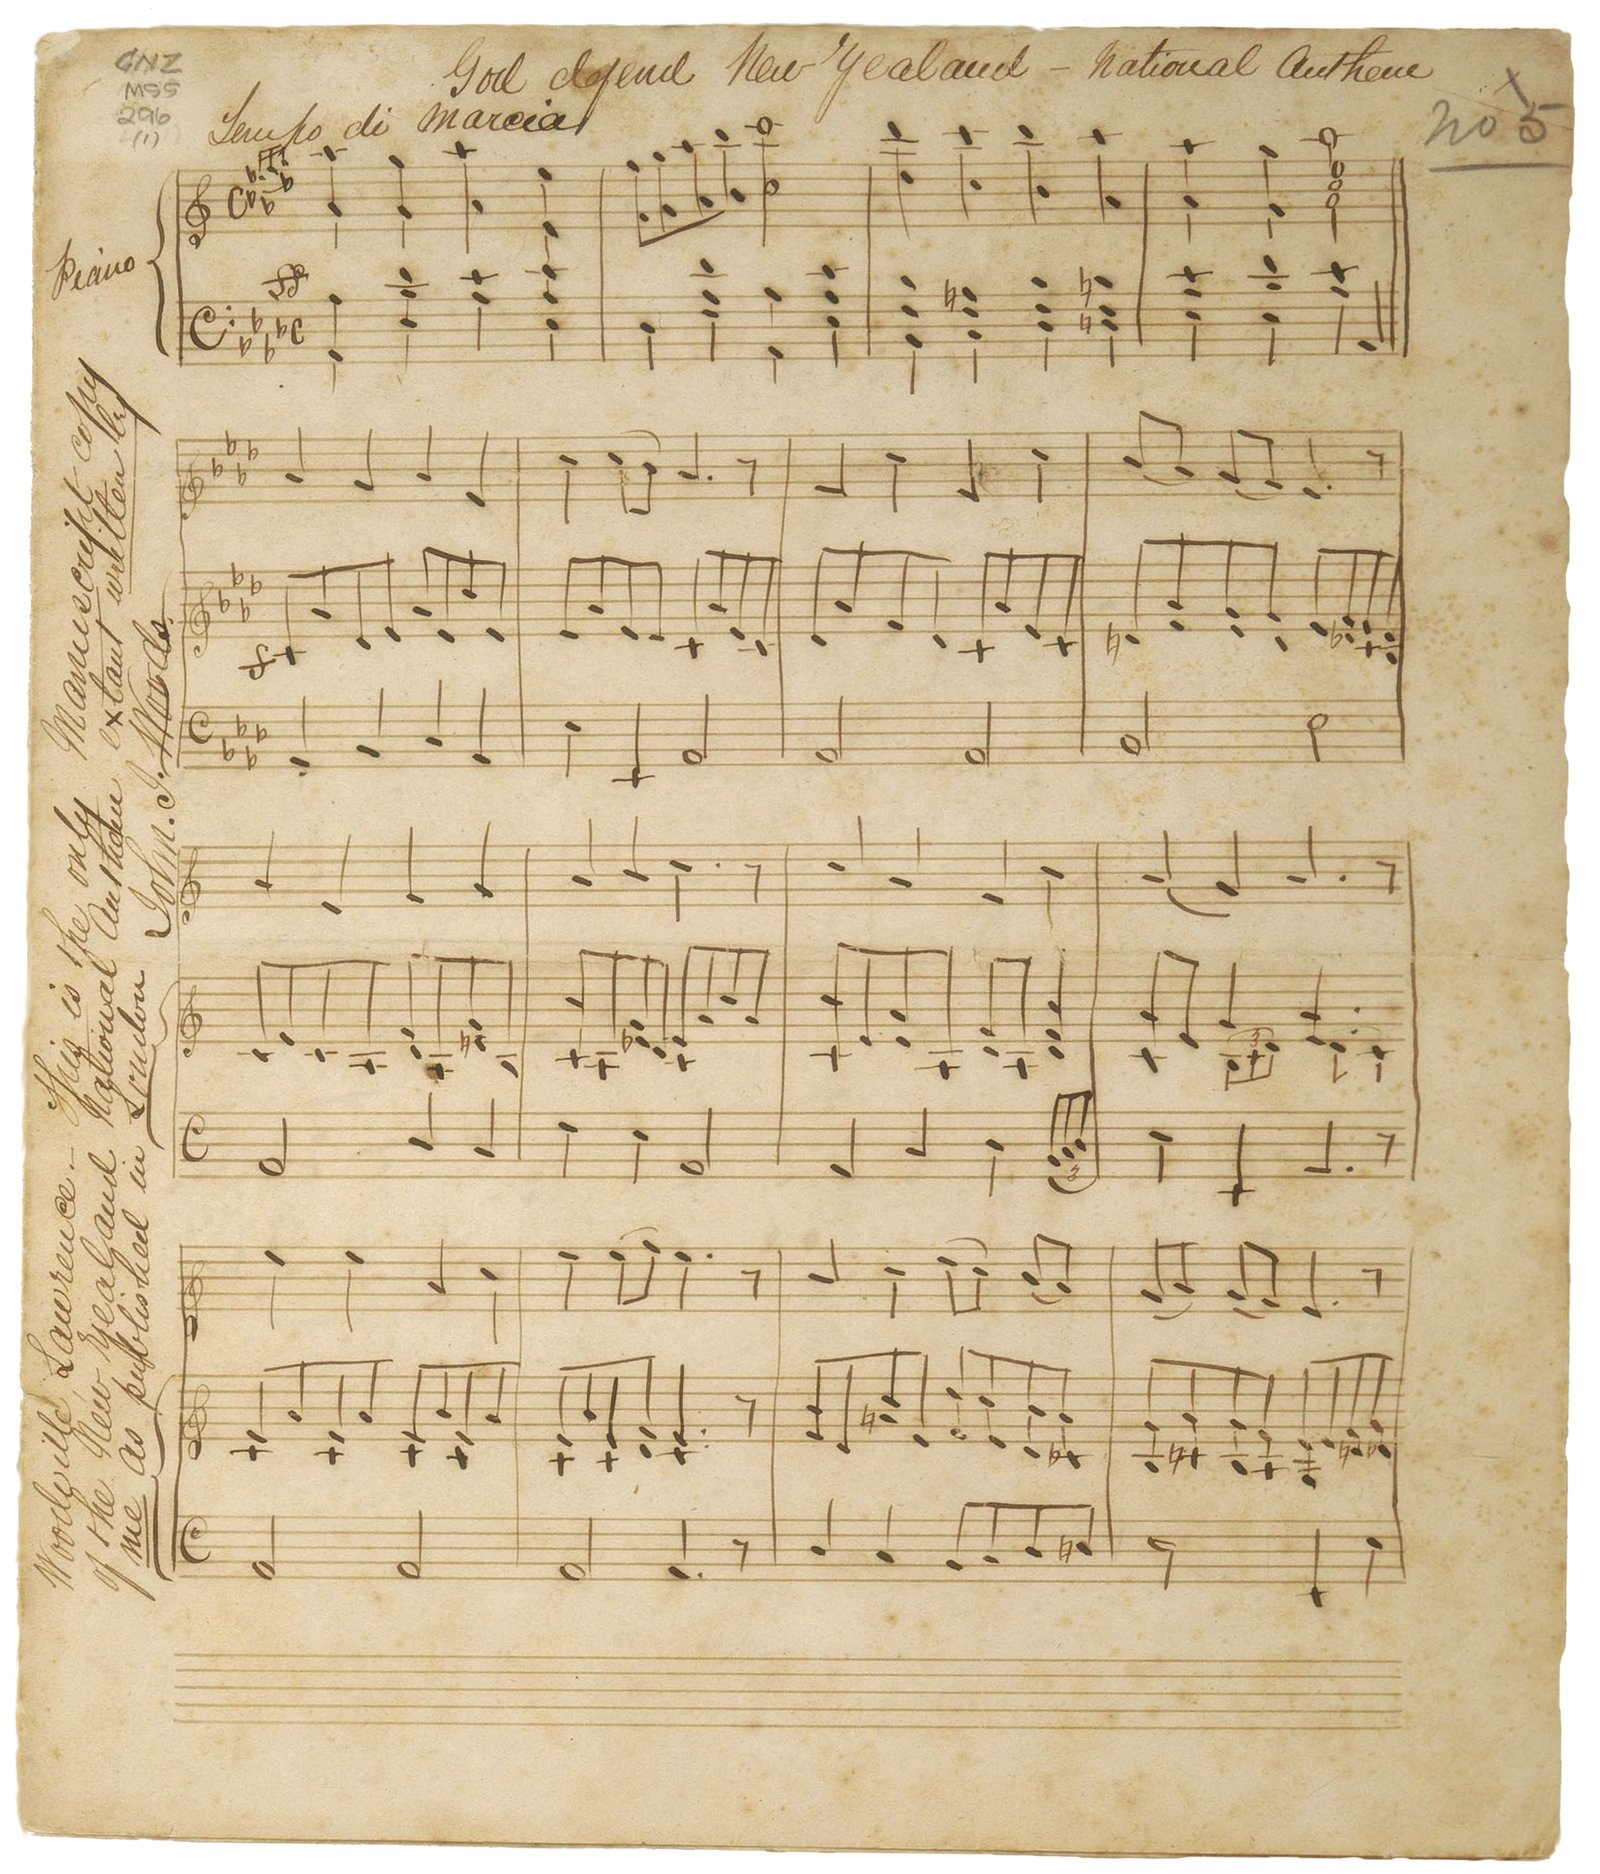 GNZ
MSS
296
(1)
God defend New Zealand - National Anthem
no 5
Tempo di Marcia
Piano
ff
Woodville, Lawrence. - This is the only Manuscript copy
of the New Zealand National Anthem extant written by
me as published in London John. J. Woods.
3
3